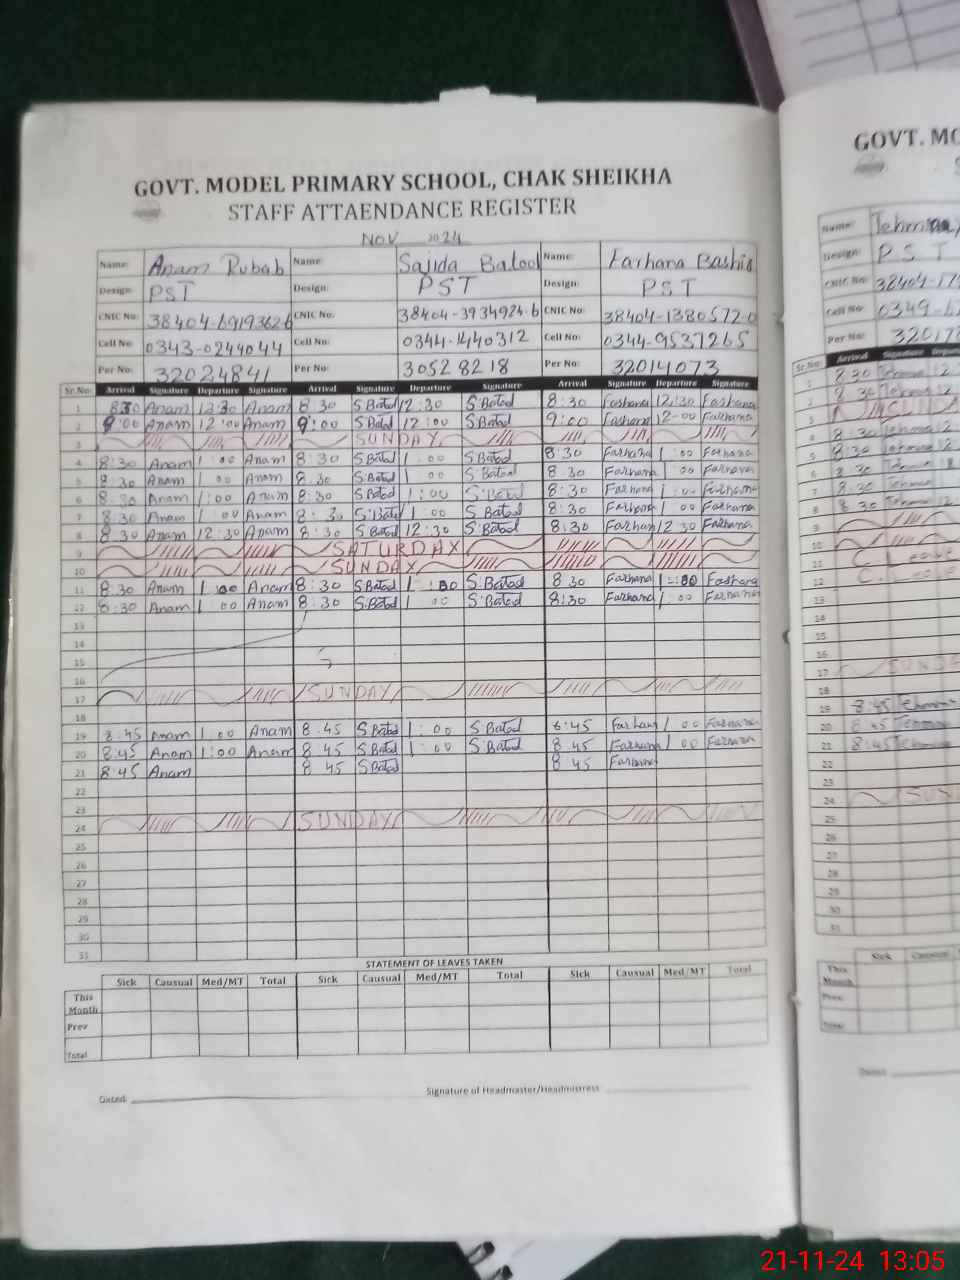 GOVT. MODEL PRIMARY SCHOOL, CHAK SHEIKHA
STAFF ATTAENDANCE REGISTER
NOV 2024
Name: Anam Rubab Name: Sajida Batool Name: Farhana Bashir
Design: PST Design: PST Design: PST
CNIC No: 38404-6919362-6 CNIC No: 38404-3934924-6 CNIC No: 38404-1380572-0
Cell No: 0343-0244044 Cell No: 0344-1440312 Cell No: 0344-9537265
Per No: 32024841 Per No: 30528218 Per No: 32014073
Sr.No: Arrival Signature Departure Signature Arrival Signature Departure Signature Arrival Signature Departure Signature
1 8:30 Anam 12:30 Anam 8:30 S.Batool 12:30 S.Batool 8:30 Farhana 12:30 Farhana
2 9:00 Anam 12:00 Anam 9:00 S.Batool 12:00 S.Batool 9:00 Farhana 12-00 Farhana
3 SUNDAY
4 8:30 Anam 1:00 Anam 8:30 S.Batool 1:00 S.Batool 8:30 Farhana 1:00 Farhana
5 8:30 Anam 1:00 Anam 8:30 S.Batool 1:00 S.Batool 8:30 Farhana 1:00 Farhana
6 8:30 Anam 1:00 Anam 8:30 S.Batool 1:00 S.Batool 8:30 Farhana 1:00 Farhana
7 8:30 Anam 1:00 Anam 8:30 S.Batool 1:00 S.Batool 8:30 Farhana 1:00 Farhana
8 8:30 Anam 12:30 Anam 8:30 S.Batool 12:30 S.Batool 8:30 Farhana 12:30 Farhana
9 SATURDAY
10 SUNDAY
11 8:30 Anam 1:00 Anam 8:30 S.Batool 1:00 S.Batool 8:30 Farhana 1:00 Farhana
12 8:30 Anam 1:00 Anam 8:30 S.Batool 1:00 S.Batool 8:30 Farhana 1:00 Farhana
13
14
15
16
17 SUNDAY
18
19 8:45 Anam 1:00 Anam 8:45 S.Batool 1:00 S.Batool 8:45 Farhana 1:00 Farhana
20 8:45 Anam 1:00 Anam 8:45 S.Batool 1:00 S.Batool 8:45 Farhana 1:00 Farhana
21 8:45 Anam 8:45 S.Batool 8:45 Farhana
22
23
24 SUNDAY
25
26
27
28
29
30
31
STATEMENT OF LEAVES TAKEN
Sick Causual Med/MT Total Sick Causual Med/MT Total Sick Causual Med/MT Total
This Month
Prev
Total
Dated: Signature of Headmaster/Headmistress
GOVT. MO
S
Name: Tehmina
Design: PST
CNIC No: 38404-17
Cell No: 0349-6
Per No: 32017
Sr.No: Arrival Signature
8:30 Tehmina 12
8:30 Tehmina 12
SUND
8:30 Tehmina
8:30 Tehmina
8:30 Tehmina
8:30 Tehmina
8:30 Tehmina
C. Leave
C. Leave
SUNDA
8:45 Tehmina
8:45 Tehmina
8:45 Tehmina
SUN
Sick Causual
This Month
Prev
Total
Dated:
21-11-24 13:05